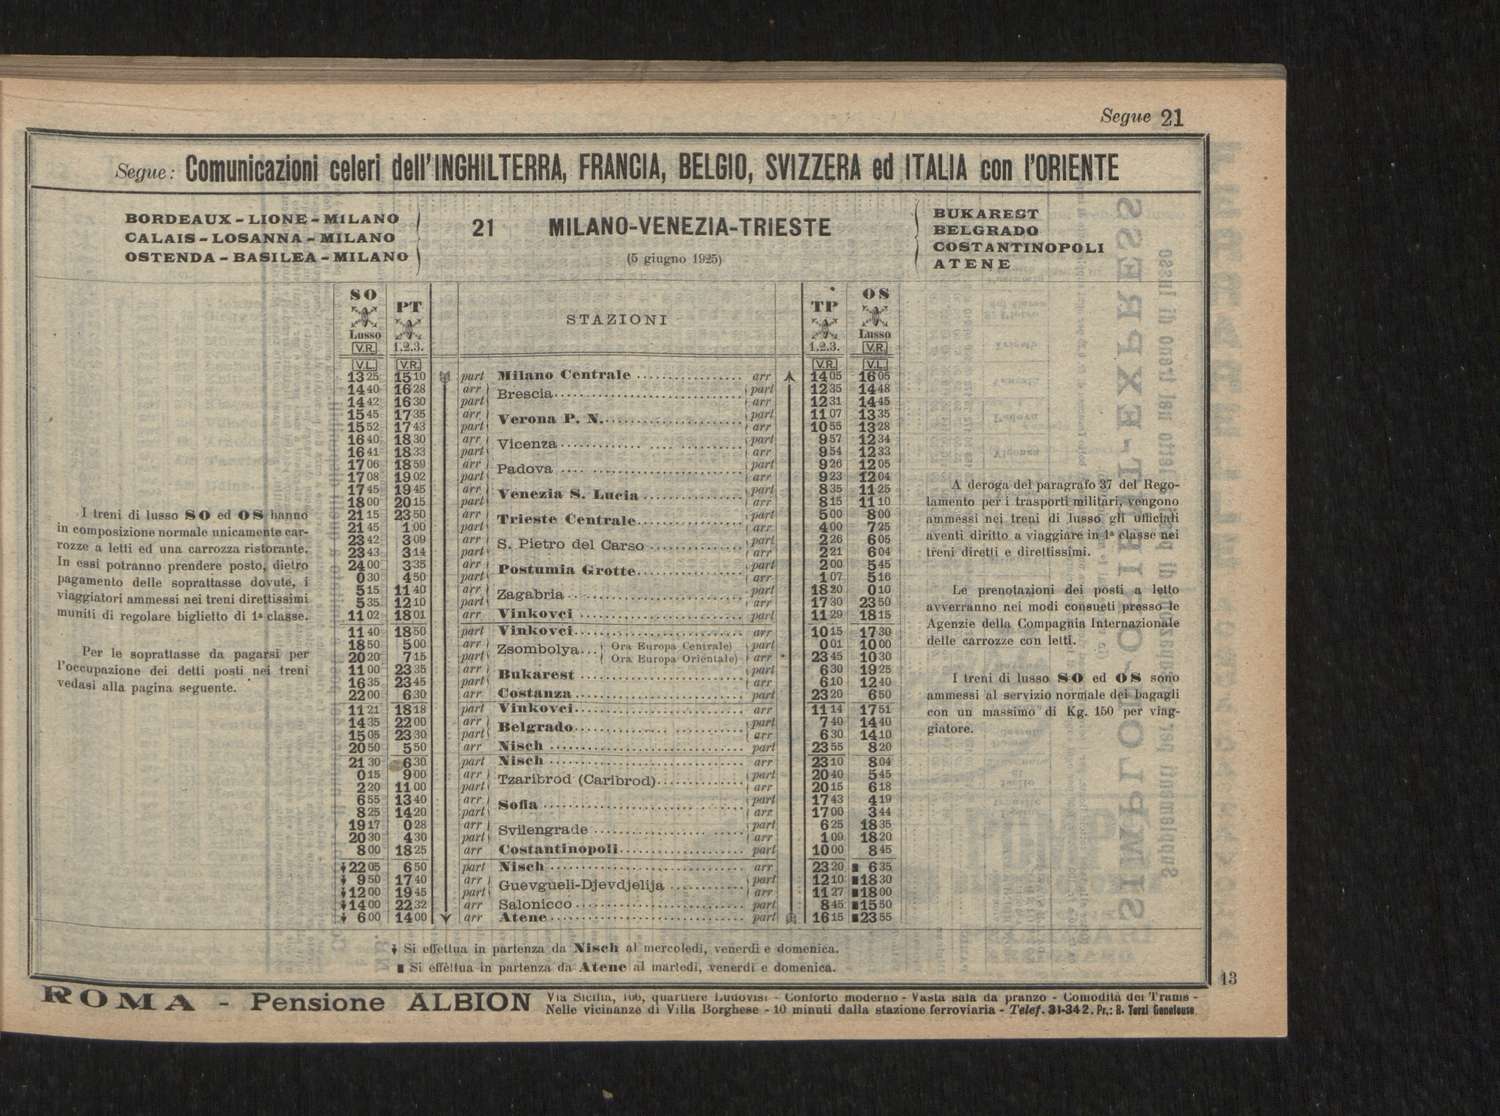 Segue 21
Segue: Comunicazioni celeri dell'INGHILTERRA, FRANCIA, BELGIO, SVIZZERA ed ITALIA con l'ORIENTE
BORDEAUX - LIONE - MILANO
CALAIS - LOSANNA - MILANO
OSTENDA - BASILEA - MILANO
21 MILANO-VENEZIA-TRIESTE
(5 giugno 1925)
BUKAREST
BELGRADO
COSTANTINOPOLI
ATENE
SO PT STAZIONI TP OS
Lusso Lusso
V.R. 1.2.3. 1.2.3. V.R.
V.L. V.R. V.R. V.L.
13 25 15 10 part Milano Centrale arr 14 05 16 05
14 40 16 28 arr Brescia part 12 35 14 48
14 42 16 30 part arr 12 31 14 45
15 45 17 35 arr Verona P. N. part 11 07 13 35
15 52 17 43 part arr 10 55 13 28
16 40 18 30 arr Vicenza part 9 57 12 34
16 41 18 33 part arr 9 54 12 33
17 06 18 59 arr Padova part 9 26 12 05
17 08 19 02 part arr 9 23 12 04
17 45 19 45 arr Venezia S. Lucia part 8 35 11 25
18 00 20 15 part arr 8 15 11 10
21 15 23 50 arr Trieste Centrale part 5 00 8 00
21 45 1 00 part arr 4 00 7 25
23 42 3 09 arr S. Pietro del Carso part 2 26 6 05
23 43 3 14 part arr 2 21 6 04
24 00 3 35 arr Postumia Grotte part 2 00 5 45
0 30 4 50 part arr 1 07 5 16
5 15 11 40 arr Zagabria part 18 20 0 10
5 35 12 10 part arr 17 30 23 50
11 02 18 01 arr Vinkovci part 11 29 18 15
11 40 18 50 part Vinkovci arr 10 15 17 30
18 50 5 00 arr Zsombolya Ora Europa Centrale) part 0 01 10 00
20 20 7 15 part Ora Europa Orientale) arr 23 45 10 30
11 00 23 35 arr Bukarest part 6 30 19 25
16 35 23 45 part arr 6 10 12 40
22 00 6 30 arr Costanza part 23 20 6 50
11 21 18 18 part Vinkovci arr 11 14 17 51
14 35 22 00 arr Belgrado part 7 40 14 40
15 05 23 30 part arr 6 30 14 10
20 50 5 50 arr Nisch part 23 55 8 20
21 30 6 30 part Nisch arr 23 10 8 04
0 15 9 00 arr Tzaribrod (Caribrod) part 20 40 5 45
2 20 11 00 part arr 20 15 6 18
6 55 13 40 arr Sofia part 17 43 4 19
8 25 14 20 part arr 17 00 3 44
19 17 0 28 arr Svilengrade part 6 25 18 35
20 30 4 30 part arr 1 00 18 20
8 00 18 25 arr Costantinopoli part 10 00 8 45
22 05 6 50 part Nisch arr 23 20 6 35
9 50 17 40 arr Guevgueli-Djevdjelija part 12 10 18 30
12 00 19 45 part arr 11 27 18 00
14 00 22 32 arr Salonicco part 8 45 15 50
6 00 14 00 arr Atene part 16 15 23 55
Si effettua in partenza da Nisch al mercoledì, venerdì e domenica.
Si effettua in partenza da Atene al martedì, venerdì e domenica.
I treni di lusso SO ed OS hanno
in composizione normale unicamente car-
rozze a letti ed una carrozza ristorante.
In essi potranno prendere posto, dietro
pagamento delle soprattasse dovute, i
viaggiatori ammessi nei treni direttissimi
muniti di regolare biglietto di 1ª classe.
Per le soprattasse da pagarsi per
l'occupazione dei detti posti nei treni
vedasi alla pagina seguente.
A deroga del paragrafo 37 del Rego-
lamento per i trasporti militari, vengono
ammessi nei treni di lusso gli ufficiali
aventi diritto a viaggiare in 1ª classe nei
treni diretti e direttissimi.
Le prenotazioni dei posti a letto
avverranno nei modi consueti presso le
Agenzie della Compagnia Internazionale
delle carrozze con letti.
I treni di lusso SO ed OS sono
ammessi al servizio normale dei bagagli
con un massimo di Kg. 150 per viag-
giatore.
13
ROMA - Pensione ALBION Via Sicilia, 166, quartiere Ludovisi - Conforto moderno - Vasta sala da pranzo - Comodità dei Trams -
Nelle vicinanze di Villa Borghese - 10 minuti dalla stazione ferroviaria - Telef. 31-342. Pr.: B. Terzi Genolouse